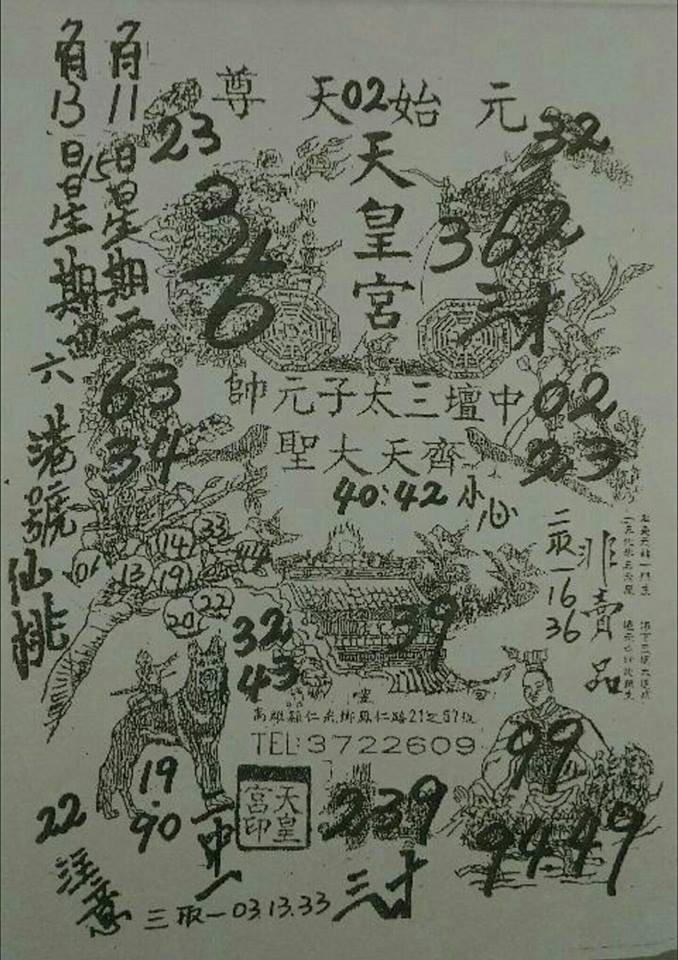 尊天02始元
23
32
天皇宮
36
362
三才
11
13
15日星期二
日星期四六
港號仙桃
63
34
帥元子太三壇中
02
23
聖大天齊
40:42
小心
二取一16
36
非賣品
01
13
14
33
19
44
20
22
32
43
39
高雄縣仁武鄉鳳仁路21之57號
TEL:3722609
99
9449
19.90
22
注意
一中一
天皇宮印
239
三才
三取一03.13.33